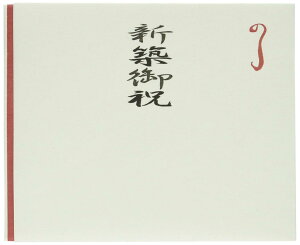 新築御祝